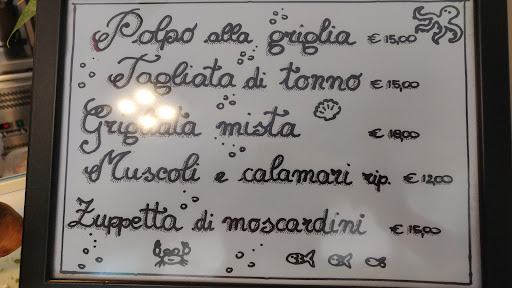 Polpo alla griglia € 15,00
Tagliata di tonno € 15,00
Grigliata mista € 18,00
Muscoli e calamari rip. € 12,00
Zuppetta di moscardini € 15,00